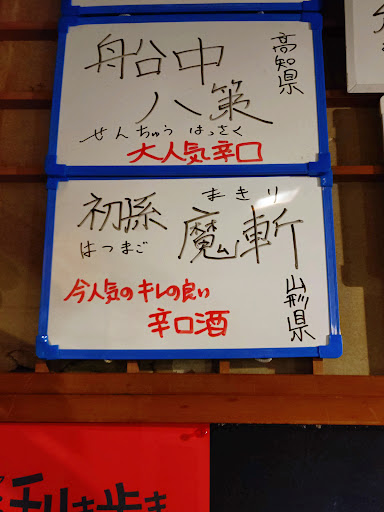 高知県
船中
八策
せんちゅう はっさく
大人気辛口
初孫 魔斬
はつまご まきり
山形県
今人気のキレの良い
辛口酒